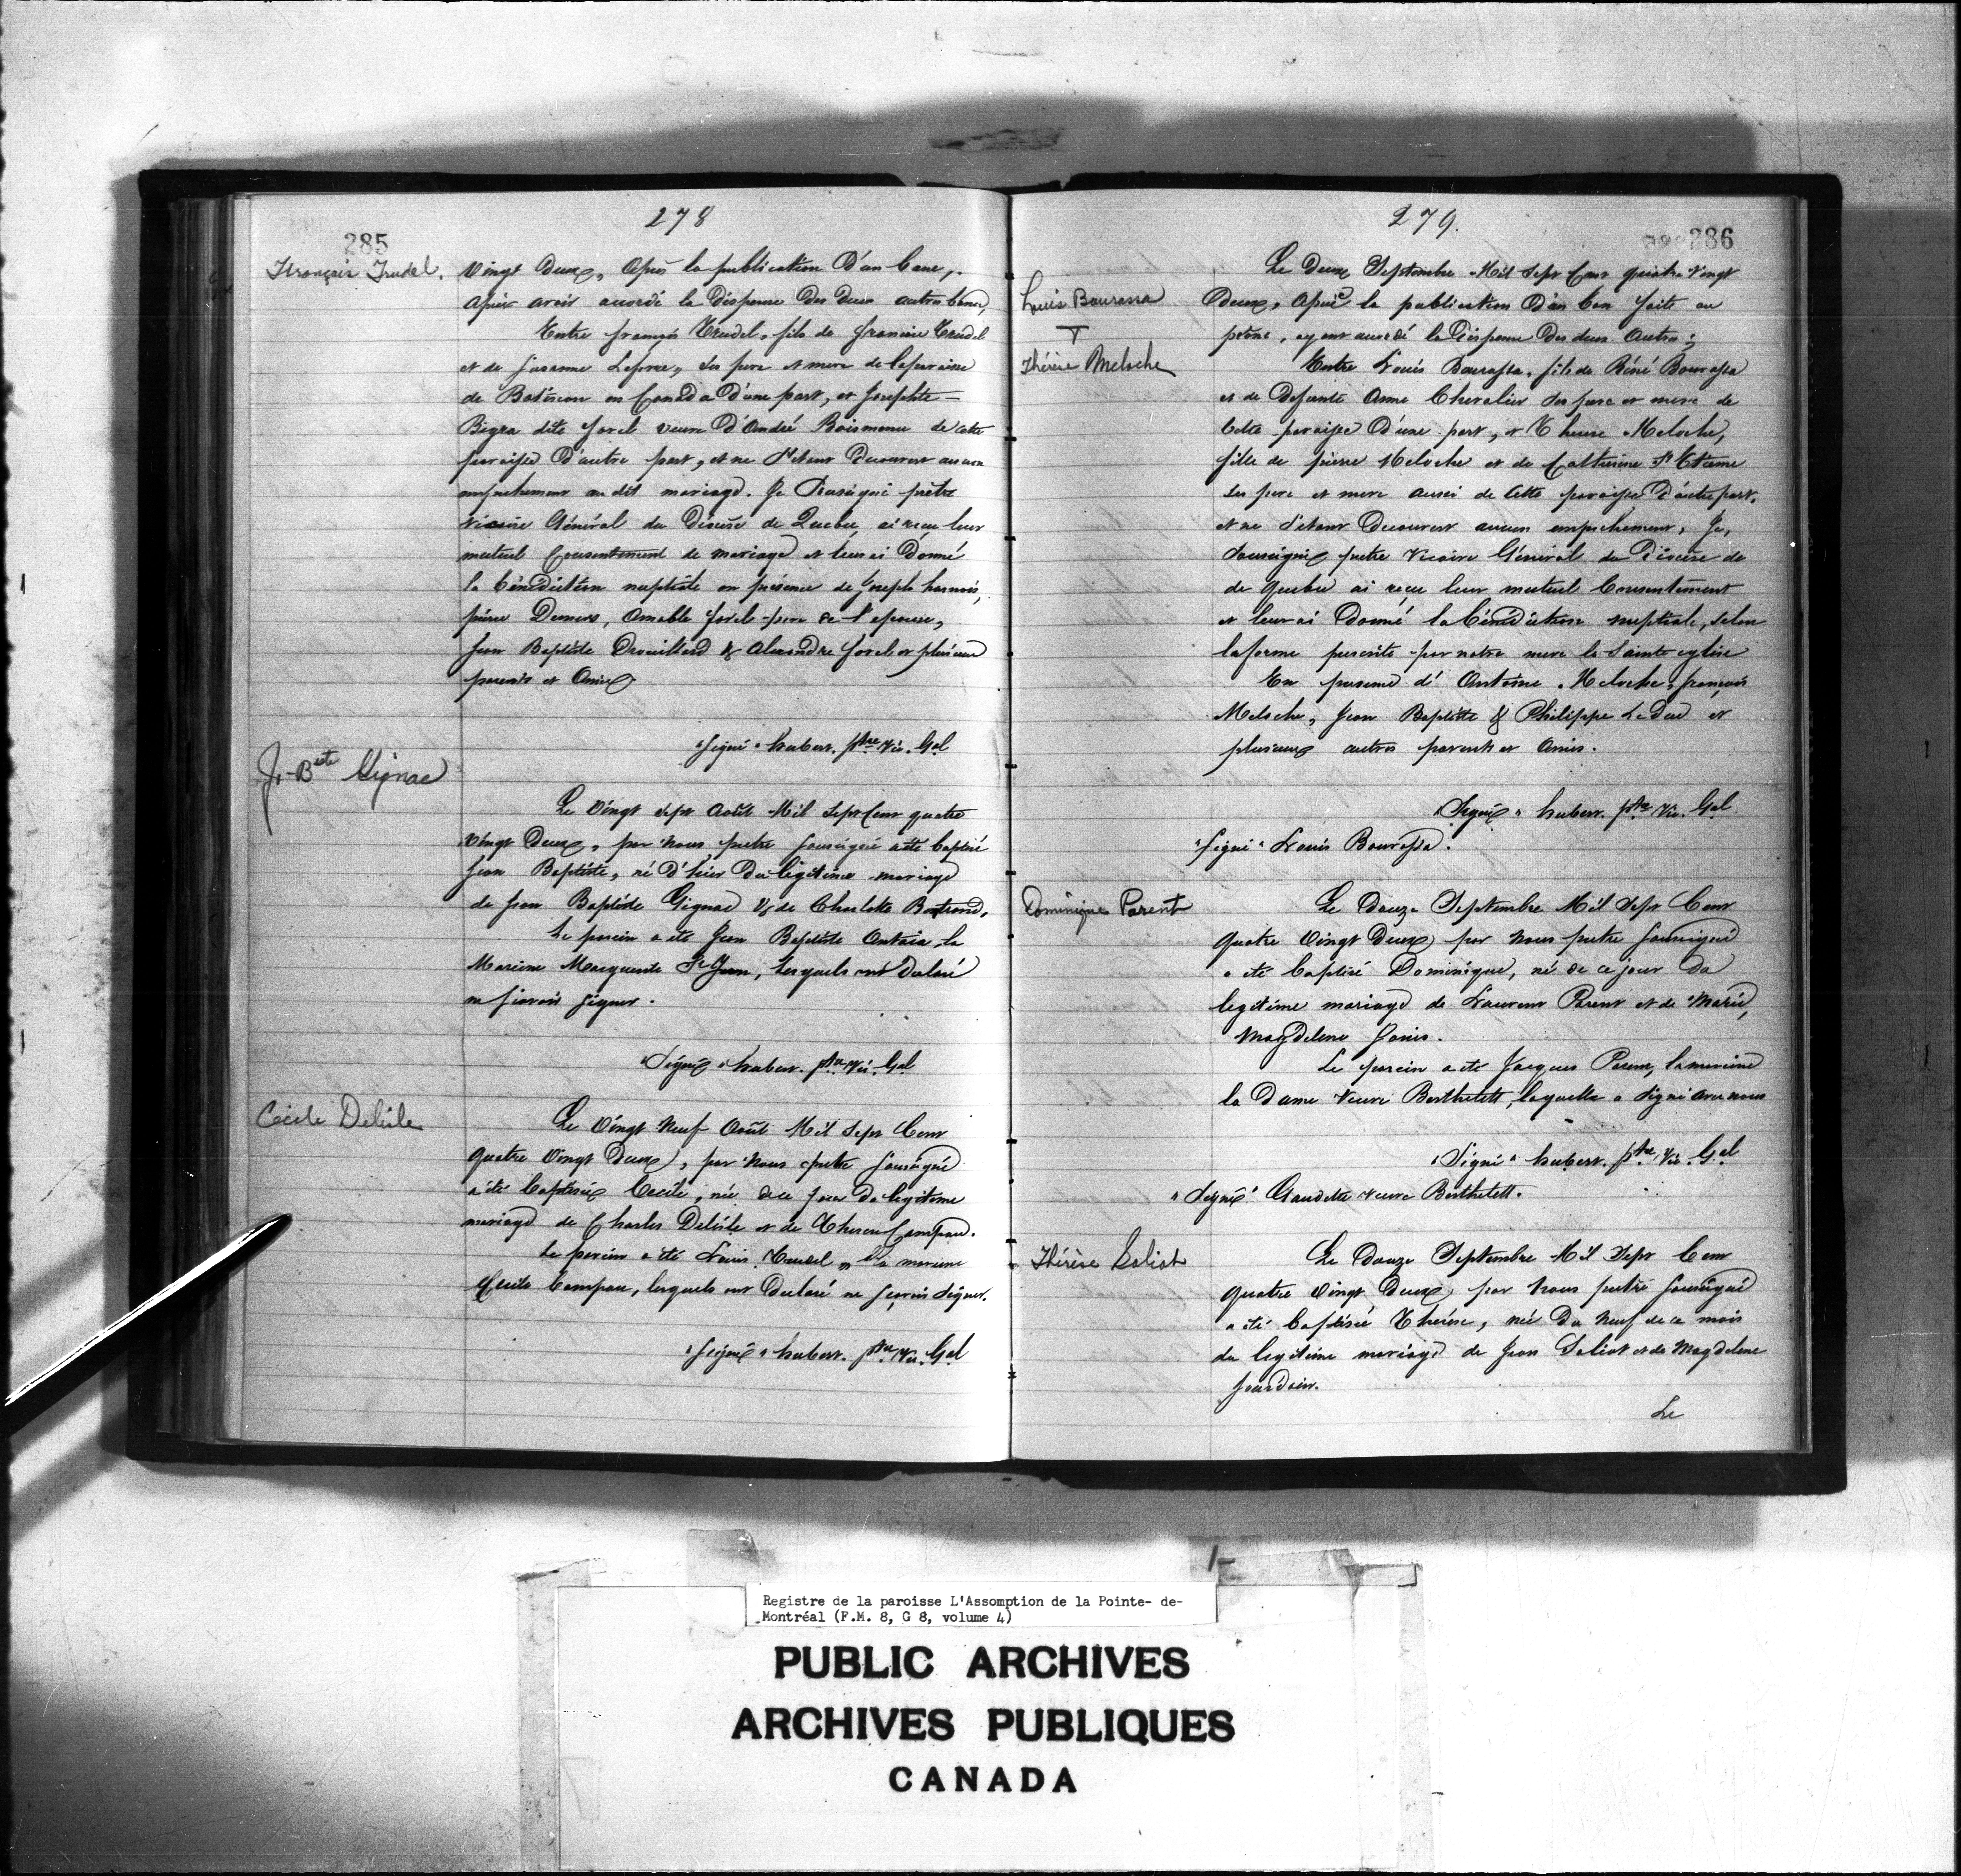 278
285
François Trudel.
Vingt Deux, Après la publication D'un banc,
Après avoir accordé la Dispense Des Deux autres bancs,
Entre françois Trudel, fils de françois Trudel
et de Susanne Lefevre, ses pere et mere de la paroisse
de Batiscan en Canada D'une part, et Josephte
Bigra dite forel veuve D'André Boismenu de cette
paroisse D'autre part, et ne s'etant Decouvert aucun
empechement au dit mariage. Je Soussigné prêtre
vicaire Général du Diocèse de Quebec ai reçu leur
mutuel Consentement de mariage et leur ai Donné
la bénédiction nuptiale en présence de Joseph harnois,
pierre Demers, Amable forel pere de l'epouse,
Jean Baptiste Drouillard & Alexandre forel et plusieurs
parents et Amis
"Signé" hubert. ptre Vic. Gal
J-Bste Gignac
Le Vingt sept Août Mil Sept Cent quatre
Vingt Deux, par nous pretre soussigné a été baptisé
Jean Baptiste, né D'hier Du légitime mariage
de Jean Baptiste Gignac & de Charlotte Bertrand.
Le parein a été Jean Baptiste Antaia, la
Mareine Marguerite St Jean, lesquels ont Déclaré
ne sçavoir signer.
"Signé" hubert. ptre Vic. Gal
Cécile Delisle
Le Vingt Neuf Août Mil Sept Cent
quatre Vingt Deux, par Nous pretre Soussigné
a été baptisée Cecile, née de ce jour Du legitime
mariage de Charles Delisle et de Therese Campau.
Le parein a été Louis Trudel, la mareine
Cecile Campau, lesquels ont Declaré ne sçavoir signer.
"Signé" hubert. ptre Vic. Gal
279.
286
Louis Bourassa
T
Thérèse Meloche
Le Deux Septembre Mil Sept Cent quatre Vingt
Deux, Après la publication D'un ban faite au
prône, ayant accordé la Dispense Des deux Autres;
Entre Louis Bourassa, fils de Réné Bourassa
et de Defunte Anne Chevalier ses pere et mere de
Cette paroisse D'une part, et Therese Meloche,
fille de pierre Meloche et de Catherine St Etienne
ses pere et mere aussi de Cette paroisse D'autre part.
et ne s'étant Decouvert aucun empechement, Je,
Soussigné pretre Vicaire Général du Diocèse de
de Quebec ai reçu leur mutuel Consentement
et leur ai Donné la bénédiction nuptiale, selon
la forme prescrite par notre mere la Sainte eglise
En presence d'Antoine Meloche, françois
Meloche, Jean Baptiste & Philippe Le Duc et
plusieurs autres parents et Amis.
"Signé" hubert. ptre Vic. Gal
"Signé" Louis Bourassa.
Dominique Parent
Le Douze Septembre Mil Sept Cent
quatre Vingt Deux, par Nous pretre Soussigné
a été baptisé Dominique, né de ce jour Du
legitime mariage de Laurent Parent et de Marie,
Magdelene
Le parein a été Jacques Parent, la mareine
la Dame Veuve Berthelett, laquelle a signé avec nous
"Signé" hubert. ptre Vic. Gal
"Signé" Gaudette veuve Berthelett.
Thérèse Saliot
Le Douze Septembre Mil Sept Cent
quatre Vingt Deux, par Nous pretre Soussigné
a été baptisée Thérèse, née Du Neuf de ce mois
du legitime mariage de Jean Saliot et de Magdelene
Jourdain.
Le
Registre de la paroisse L'Assomption de la Pointe- de-
Montréal (F.M. 8, G 8, volume 4)
PUBLIC ARCHIVES
ARCHIVES PUBLIQUES
CANADA